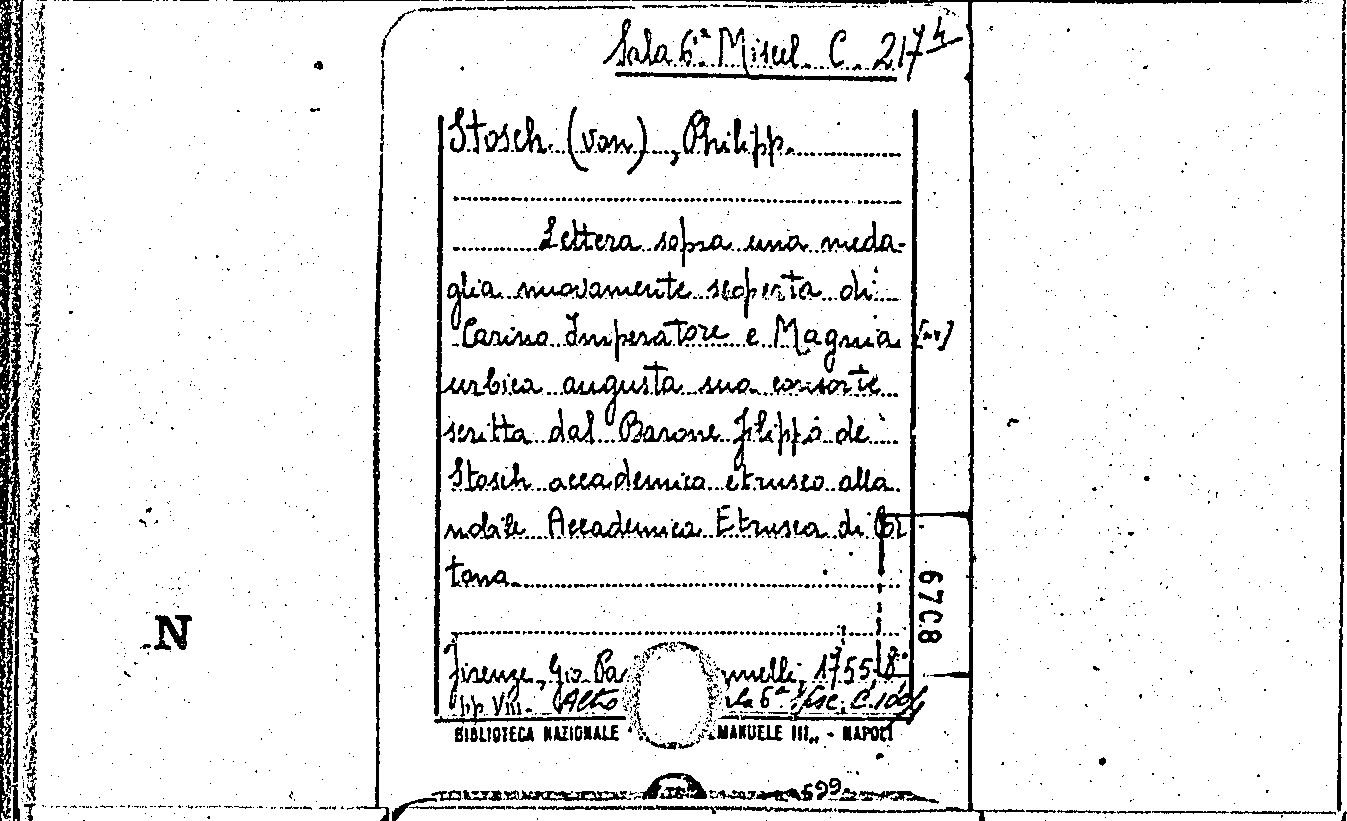 Sala 6ª Miscel. C. 217 4
Stosch (von), Philipp.
Lettera sopra una meda-
glia nuovamente scoperta di
Carino Imperatore e Magnia
urbica augusta sua consorte
scritta dal Barone Filippo de
Stosch accademico etrusco alla
nobile Accademica Etrusca di Cor
tona
6708
N
Firenze, Gio Ba nnelli, 1755 8º
pp VIII. Altro la 6ª Misc. C.
BIBLIOTECA NAZIONALE MANUELE III„ - NAPOLI
599